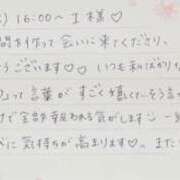 ) 16:00〜 I様♡
間を作って会いに来てくださり、
うございます♡♡ いつも私ばかり
」って言葉がすごく嬉しくて、そう言っ
けで全部報われる気がします
に気持ちが高まります♡ また